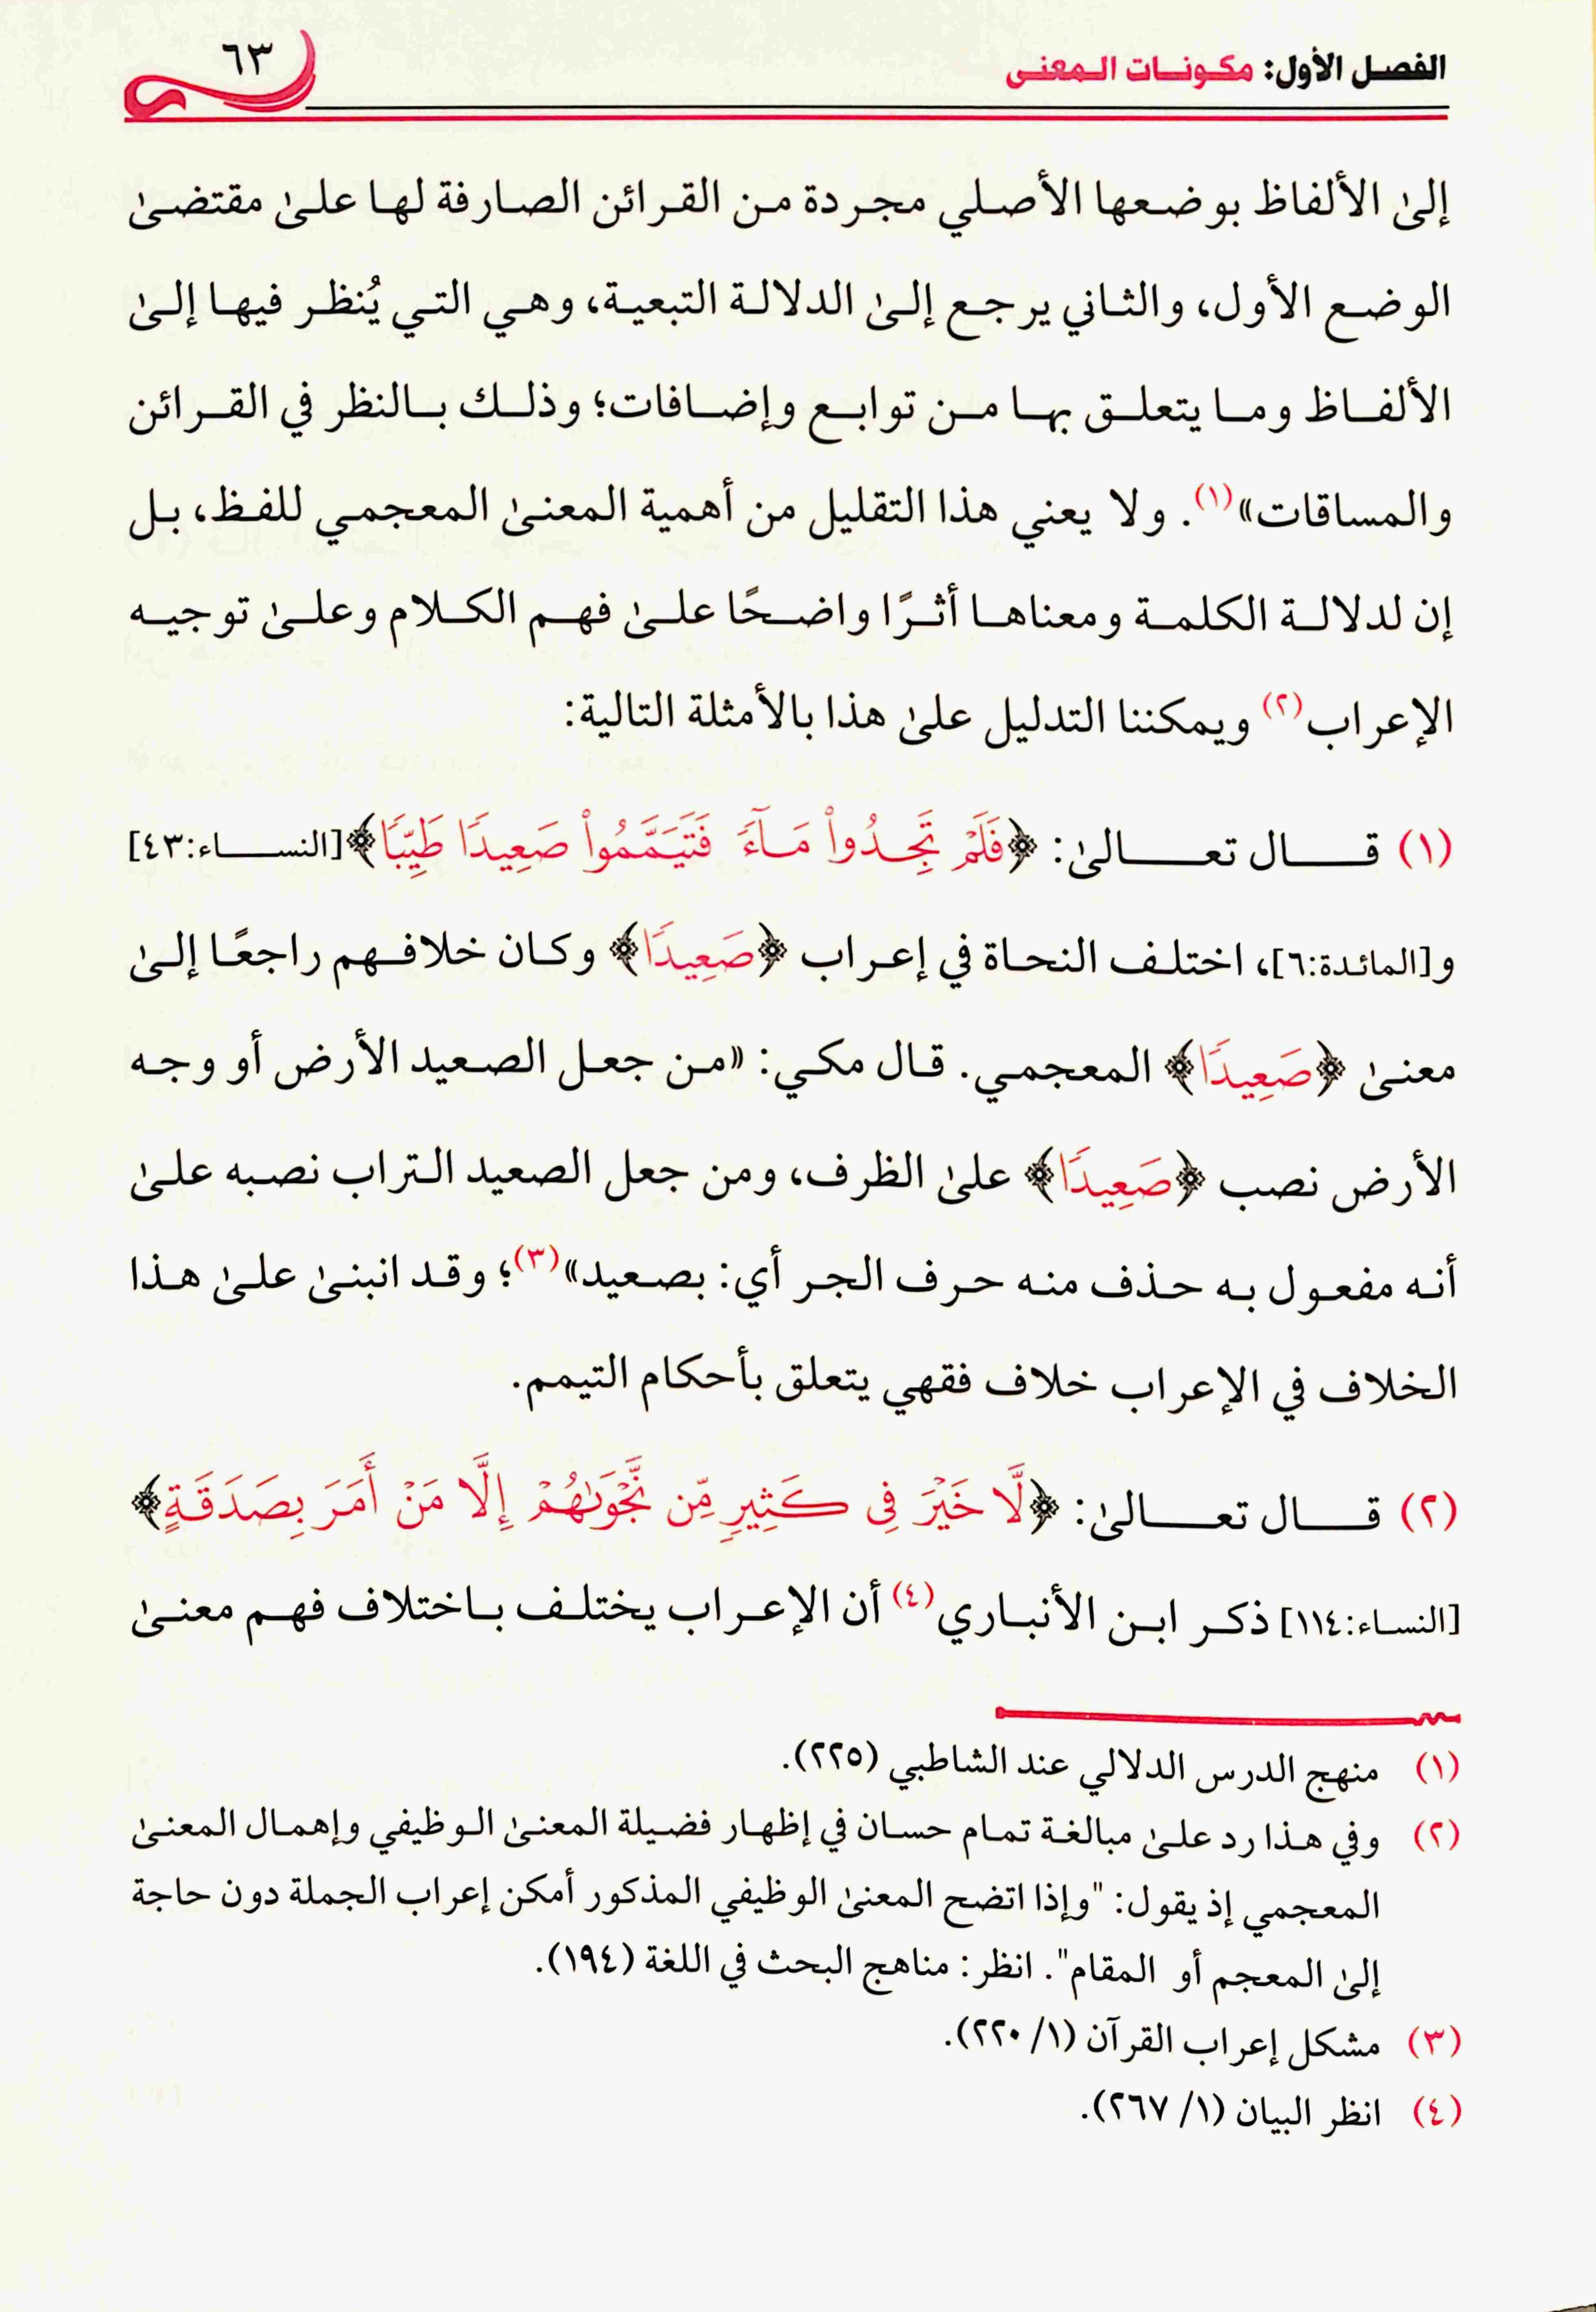 الفصل الأول: مكونات المعنى
٦٣
إلىٰ الألفاظ بوضعها الأصلي مجردة من القرائن الصارفة لها علىٰ مقتضىٰ
الوضع الأول، والثاني يرجع إلىٰ الدلالة التبعية، وهي التي يُنظر فيها إلىٰ
الألفاظ وما يتعلق بها من توابع وإضافات؛ وذلك بالنظر في القرائن
والمساقات»(١). ولا يعني هذا التقليل من أهمية المعنىٰ المعجمي للفظ، بل
إن لدلالة الكلمة ومعناها أثرًا واضحًا علىٰ فهم الكلام وعلىٰ توجيه
الإعراب(٢) ويمكننا التدليل علىٰ هذا بالأمثلة التالية:
(١) قال تعالىٰ: ﴿فَلَمْ تَجِدُوا۟ مَآءً فَتَيَمَّمُوا۟ صَعِيدًا طَيِّبًا﴾[النساء:٤٣]
و[المائدة:٦]، اختلف النحاة في إعراب ﴿صَعِيدًا﴾ وكان خلافهم راجعًا إلىٰ
معنىٰ ﴿صَعِيدًا﴾ المعجمي. قال مكي: «من جعل الصعيد الأرض أو وجه
الأرض نصب ﴿صَعِيدًا﴾ علىٰ الظرف، ومن جعل الصعيد التراب نصبه علىٰ
أنه مفعول به حذف منه حرف الجر أي: بصعيد»(٣)؛ وقد انبنىٰ علىٰ هذا
الخلاف في الإعراب خلاف فقهي يتعلق بأحكام التيمم.
(٢) قال تعالىٰ: ﴿لَّا خَيْرَ فِى كَثِيرٍ مِّن نَّجْوَىٰهُمْ إِلَّا مَنْ أَمَرَ بِصَدَقَةٍ﴾
[النساء:١١٤] ذكر ابن الأنباري(٤) أن الإعراب يختلف باختلاف فهم معنىٰ
(١) منهج الدرس الدلالي عند الشاطبي (٢٢٥).
(٢) وفي هذا رد علىٰ مبالغة تمام حسان في إظهار فضيلة المعنىٰ الوظيفي وإهمال المعنىٰ
المعجمي إذ يقول: "وإذا اتضح المعنىٰ الوظيفي المذكور أمكن إعراب الجملة دون حاجة
إلىٰ المعجم أو المقام". انظر: مناهج البحث في اللغة (١٩٤).
(٣) مشكل إعراب القرآن (١/ ٢٢٠).
(٤) انظر البيان (١/ ٢٦٧).